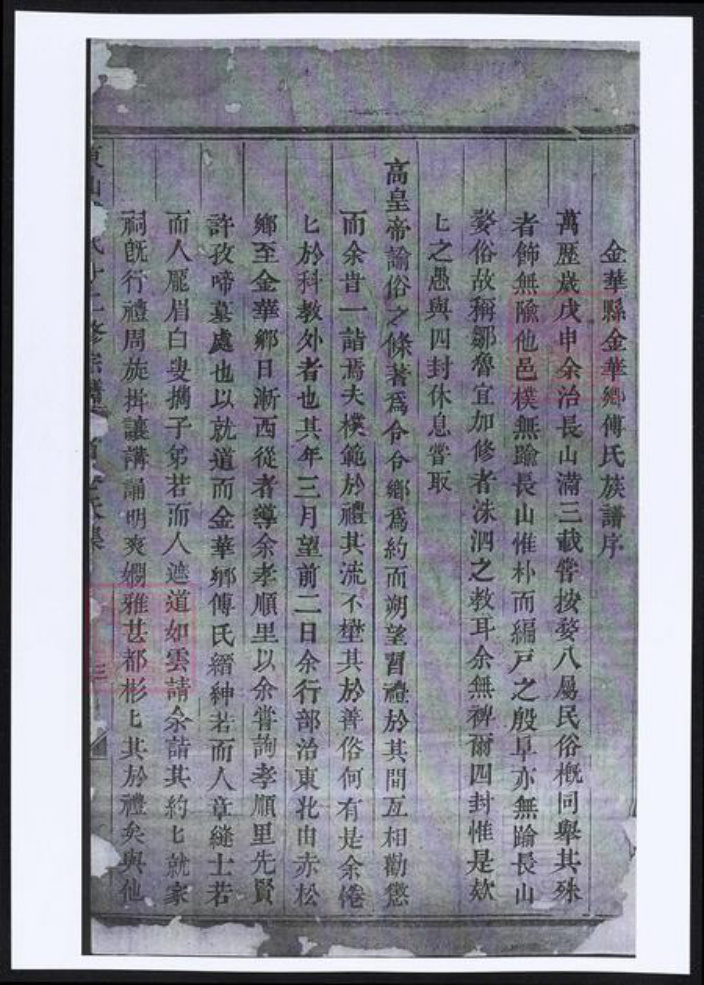 金華縣金華鄉傅氏族譜序
萬歷歲戊申余治長山滿三載嘗按婺八屬民俗槪同舉其殊
者飾無隃他邑樸無踰長山惟朴而編戸之殷阜亦無踰長山
婺俗故稱鄒魯宜加修者洙泗之教耳余無裨爾四封惟是欸
匕之愚與四封休息嘗取
高皇帝諭俗之條著爲令令鄉爲約而朔望習禮於其間互相勸懲
而余昔一詣焉夫樸範於禮其流不壄其於善俗何有是余倦
匕於科教外者也其年三月望前二日余行部治東北由赤松
鄉至金華鄉日漸西從者導余孝順里以余嘗詢孝順里先賢
許孜啼墓處也以就道而金華鄉傅氏縉紳若而人章縫士若
而人龎眉白叟攜子弟若而人遮道如雲請余詣其約匕就家
祠旣行禮周旋揖讓講誦明爽嫻雅甚都彬匕其於禮矣與他
修宗譜
三